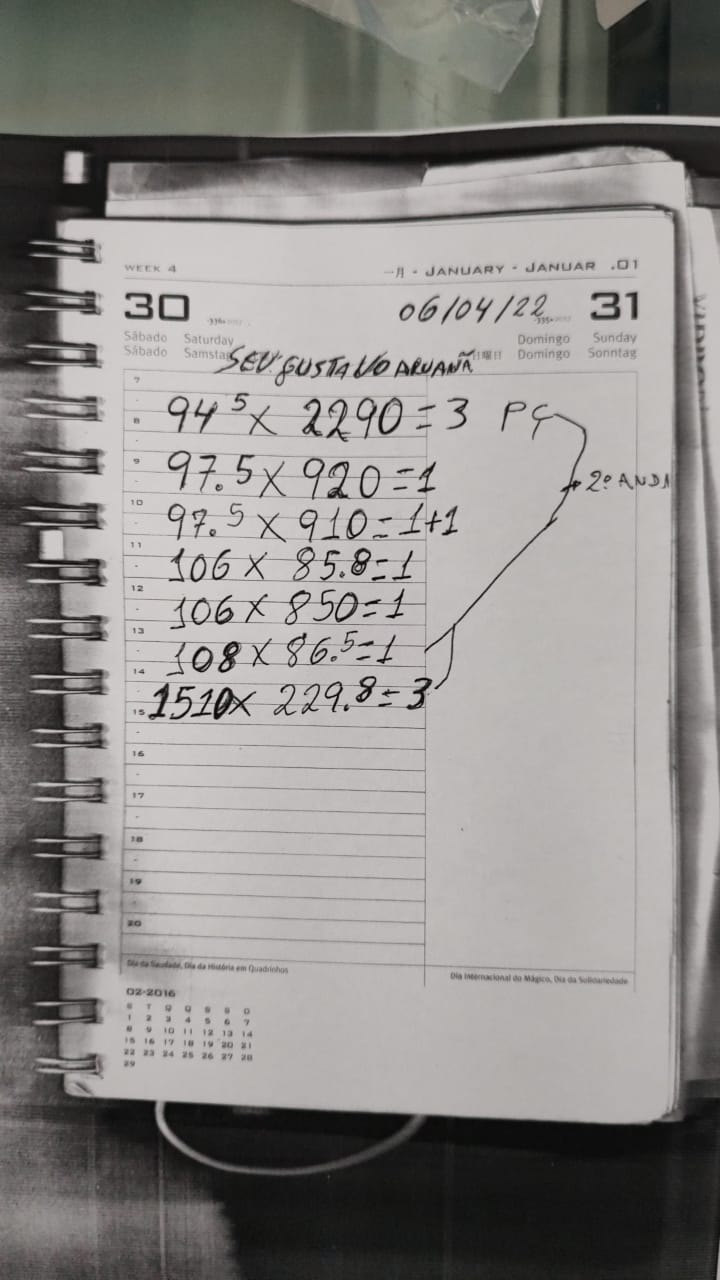 WEEK 4
一月 - JANUARY - JANUAR .01
30
06/04/22
31
Sábado Saturday
Domingo Sunday
Sábado Samstag
日曜日 Domingo Sonntag
SEU. GUSTAVO ARUANÃ
7
8 94⁵ X 2290 = 3 PÇ
9 97.5 X 920 = 1
2º ANDA
10 97.5 X 910 = 1+1
11 106 X 85.8 = 1
12 106 X 850 = 1
13 108 X 86.5 = 1
14
15 1510 X 229.8 = 3
16
17
18
19
20
Dia da Saudade, Dia da História em Quadrinhos
Dia Internacional do Mágico, Dia da Solidariedade
02-2016
S T Q Q S S D
1 2 3 4 5 6 7
8 9 10 11 12 13 14
15 16 17 18 19 20 21
22 23 24 25 26 27 28
29